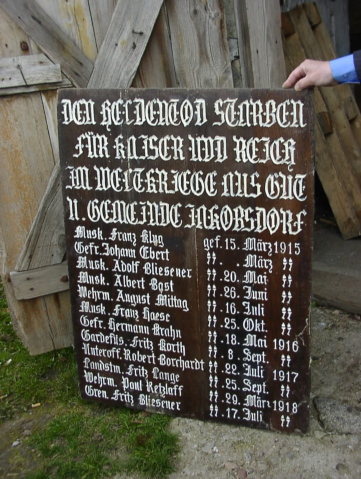 DEN HELDENTOD STARBEN
FÜR KAISER UND REICH
IM WELTKRIEGE AUS GUT
U. GEMEINDE JAKOBSDORF
Musk. Franz Klug gef. 15. März 1915
Gefr. Johann Ebert " .. März "
Musk. Adolf Bliesener " 20. Mai "
Musk. Albert Bast " 26. Juni "
Wehrm. August Mittag " 16. Juli "
Musk. Franz Haese " 25. Okt. "
Gefr. Hermann Krahn " 18. Mai 1916
Gardefüs. Fritz Korth " 8. Sept. "
Unteroff. Robert Borchardt " 22. Juli 1917
Landstm. Fritz Lange " 25. Sept. "
Wehrm. Paul Retzlaff " 29. März 1918
Gren. Fritz Bliesener " 17. Juli "